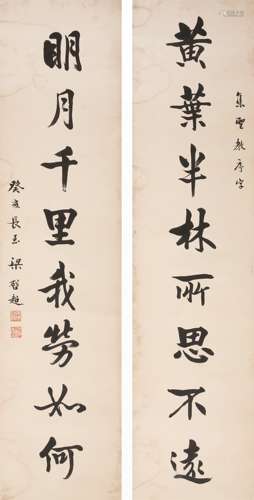 集聖教序字
黃葉半林所思不遠
明月千里我勞如何
癸亥長至梁啓超